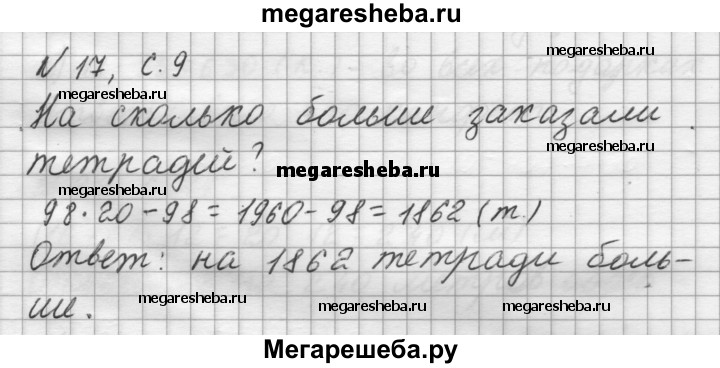 megaresheba.ru
N 17, с. 9
megaresheba.ru
megaresheba.ru
На сколько больше заказали
тетрадей?
megaresheba.ru
megaresheba.ru
megaresheba.ru
98·20-98=1960-98=1862 (т.)
Ответ: на 1862 тетради боль-
ше.
megaresheba.ru
megaresheba.ru
megaresheba.ru
Мегарешеба.ру